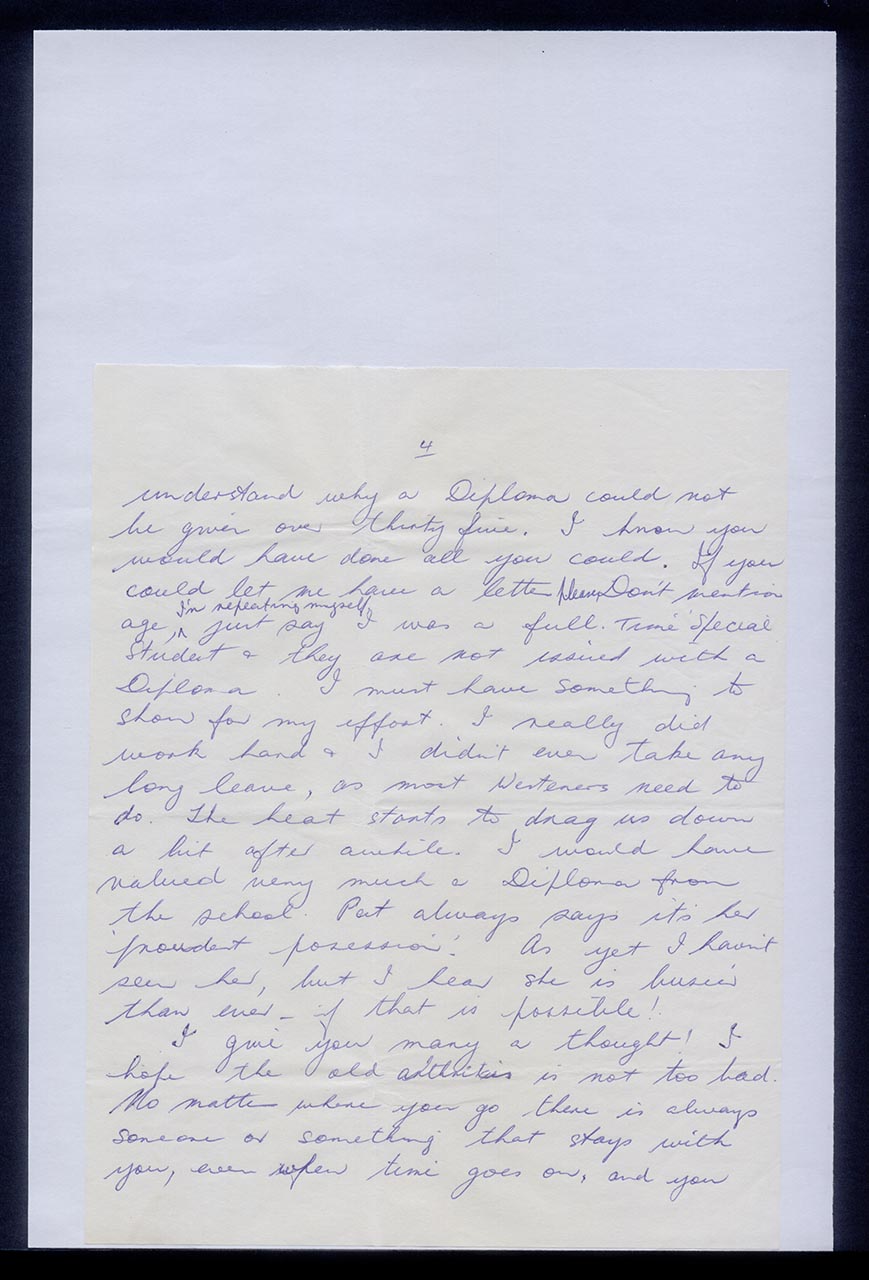 4
understand why a Diploma could not
be given over thirty five. I know you
would have done all you could. If you
could let me have a letter please Don't mention
I'm repeating myself,
age, ^ just say I was a full. Time Special
Student & they are not issued with a
Diploma. I must have something to
show for my effort. I really did
work hard & I didn't ever take any
long leave, as most Westeners need to
do. The heat starts to drag us down
a bit after awhile. I would have
valued very much a Diploma from
the school. Pat always says it's her
'proudest posession'. As yet I havn't
seen her, but I hear she is busier
than ever - if that is possible!
I give you many a thought! I
hope the old arthritis is not too bad.
No matter where you go there is always
someone or something that stays with
you, even when time goes on, and you